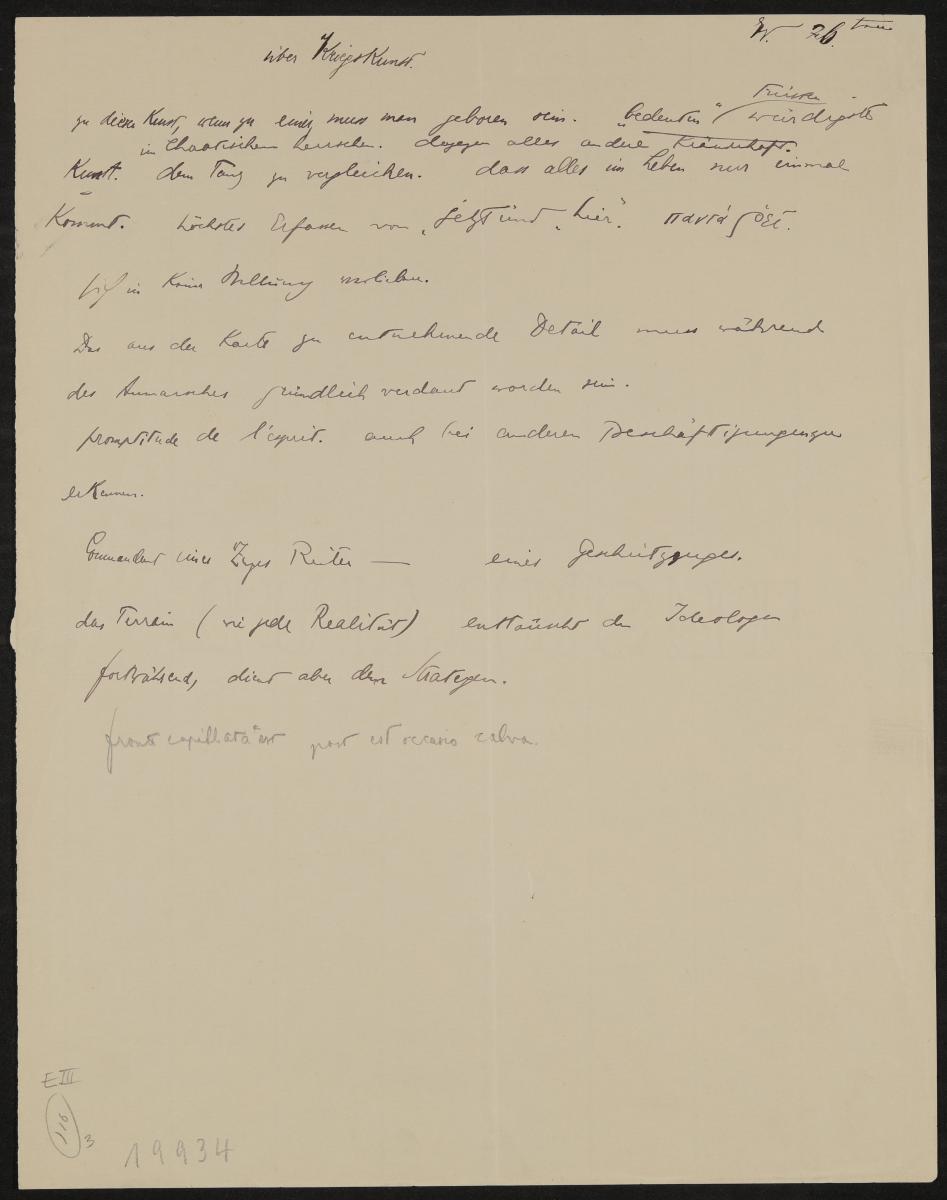 26.
über Kriegskunst.
zu dieser Kunst, wenn zu einer, muss man geboren sein. „bedeuten" würdigste
im Chaotischen herrschen. dagegen alles andere
Kunst. dem Tanz zu vergleichen. dass alles im Leben nur einmal
kommt. höchstes Erfassen von „jetzt und „hier". παντά ῥεῖ.
sich in keine Stellung verlieben.
Das aus der Karte zu entnehmende Detail muss während
des Anmarsches gründlich verdaut worden sein.
promptitude de l'esprit. auch bei anderen Beschäftigungen zu
erkennen.
Commandant eines Zuges Reiter — eines Geschützzuges.
das Terrain (wie jede Realität) enttäuscht den Ideologen
fortwährend, dient aber dem Strategen.
fronte capillata est post est occasio calva.
E III
116
3
19934